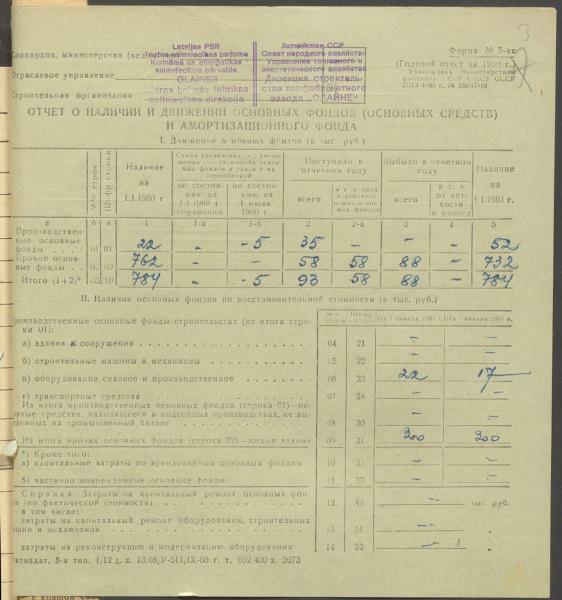 3
7
Latvijas PSR
Tautas saimniecības padome
Kurināmā un enerģētikas
saimniecības pārvalde
OLAINES
kūdras brikešu fabrikas
celtniecības direkcija
Латвийская ССР
Совет народного хозяйства
Управление топливного и
энергетического хозяйства
Дирекция строитель-
ства торфобрикетного
завода „ОЛАЙНЕ"
Совнархоз, министерство
Отраслевое управление
Строительная организация
Форма № 5-кс
(Годовой отчет за 1960 г.)
Утверждена Министерством
финансов и СССР
27/IX-1960 г. №
ОТЧЕТ О НАЛИЧИИ И ДВИЖЕНИИ ОСНОВНЫХ ФОНДОВ (ОСНОВНЫХ СРЕДСТВ)
И АМОРТИЗАЦИОННОГО ФОНДА
I. Движение основных фондов (в тыс. руб.)
№№ строк
Шифр строки
Наличие на 1.1.1960 г
Сумма увеличения +, уменьшения — стоимости основных фондов в связи с их переоценкой
по состоянию на 1.I.1960 г справочно
по состоянию на 1 июля 1960 г.
Поступило в отчетном году
всего
в т. ч. ввод в действие новых основных фондов
Выбыло в отчетном году
всего
в т. ч. от ветхости и износа
Наличие на 1.I.1961 г.
а б в 1 1-а 1-б 2 2-а 3 4 5
Производственные основные фонды . . 01 01 22 - -5 35 - - - 52
Прочие основные фонды . . 02 02 762 - - 58 58 88 - 732
Итого (1+2)* 03 10 784 - -5 93 58 88 - 784
II. Наличие основных фондов по восстановительной стоимости (в тыс. руб.)
На 1 января 1960 г. На 1 января 1961 г.
Производственные основные фонды строительства (из итога строки 01):
а) здания и сооружения 04 21 - -
б) строительные машины и механизмы 05 22 - -
в) оборудование силовое и производственное 06 23 22 17
г) транспортные средства 07 24 - -
Из итога производственных основных фондов (строка 01)—основные средства, находящиеся в подсобных производствах, не выделенных на промышленный баланс 08 30 - -
Из итога прочих основных фондов (строка 02)—жилые здания 09 31 300 300
*) Кроме того:
а) капитальные затраты по арендованным основным фондам 10 31 - -
б) частично поврежденные основные фонды 11 33 - -
Справка. Затраты на капитальный ремонт основных фондов (по фактической стоимости) 12 40 - тыс. руб.
в том числе:
затраты на капитальный ремонт оборудования, строительных машин и механизмов 13 51 - „
затраты на реконструкцию и модернизацию оборудования 14 52 - „
8-я тип. 1,12 д. л. 13,08,У-511/IX-60 г. т. 602 400 з. 2073